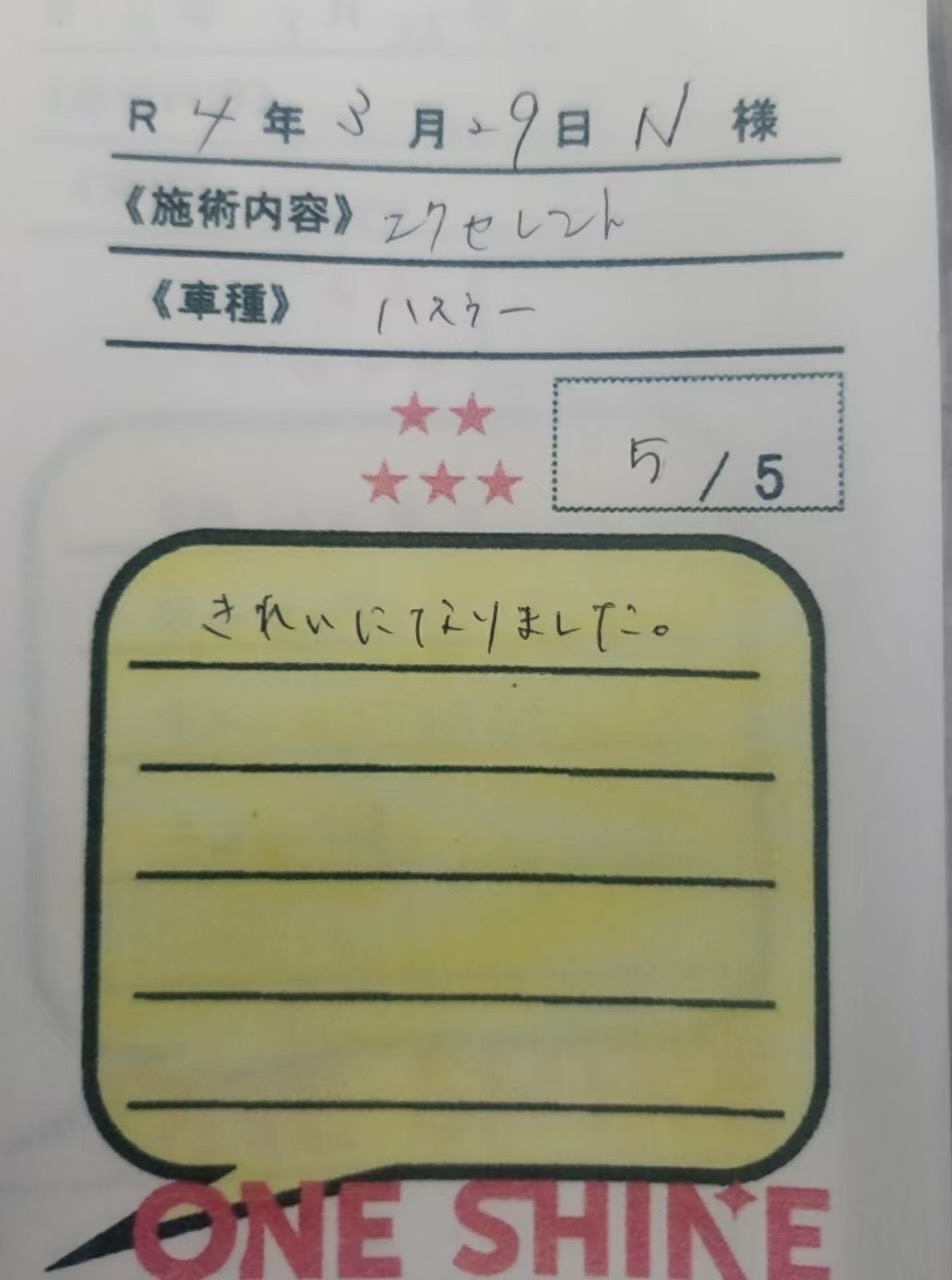 R 4年 3月29日 N 様
《施術内容》エクセレント
《車種》 ハスラー
5 / 5
きれいになりました。
ONE SHINE